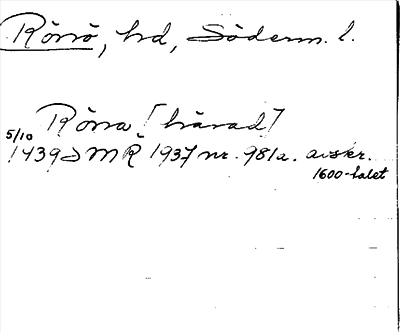 Rönö, hd, Söderm. l.
Röna [härad]
5/10
1439 DMR 1937 nr. 981a. avskr.
1600-talet